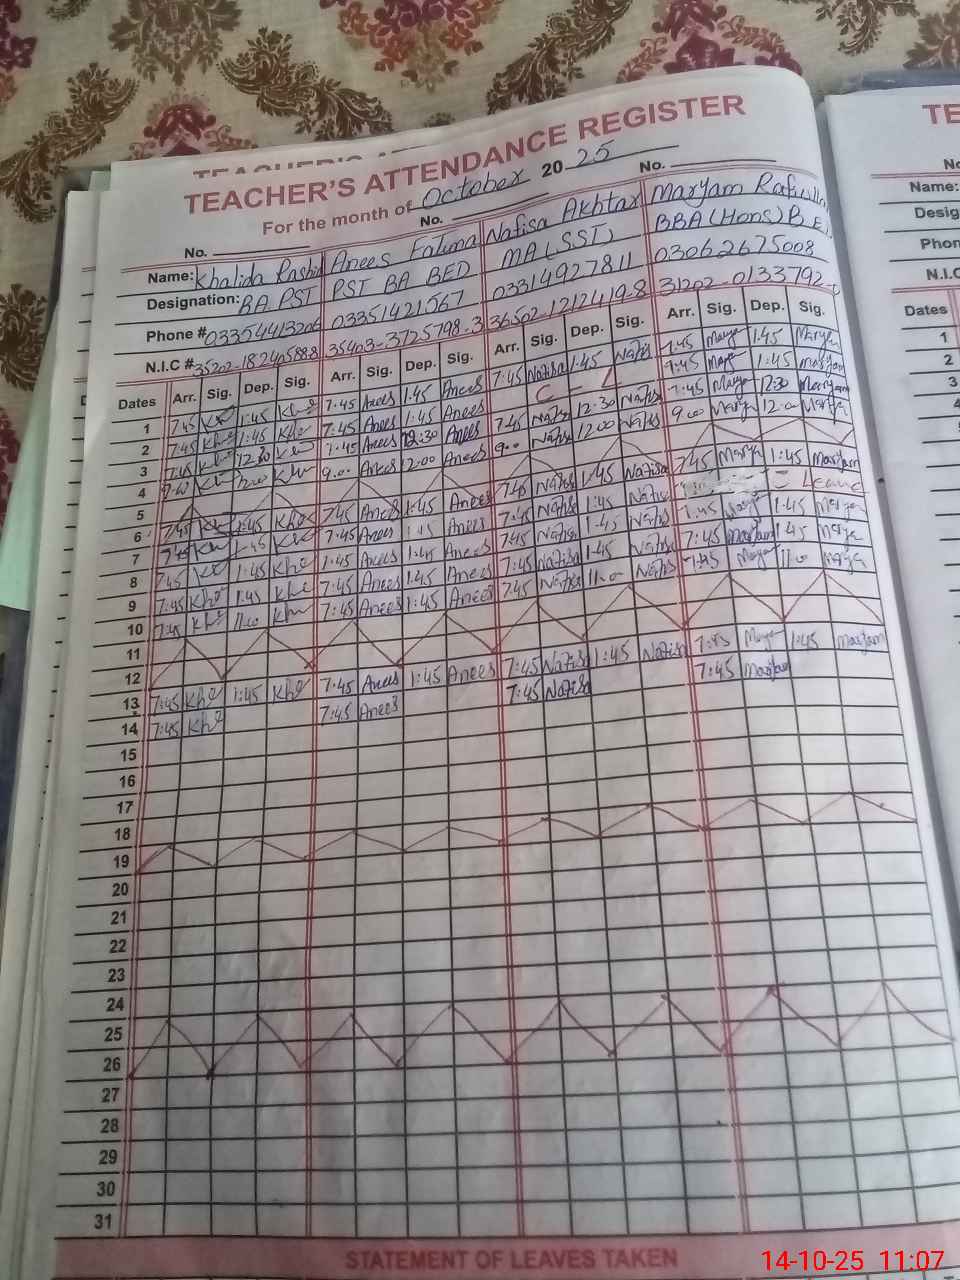 TEACHER'S ATTENDANCE REGISTER
For the month of October 2025
No. No. No.
Name: Khalida Rashid Anees Fatima Nafisa Akhtar Maryam
Designation: BA. PST PST BA BED MA (SST) BBA (Hons) B.Ed
Phone # 03354413206 03351421567 03314927811 03062675008
N.I.C # 35403-3725798-3 36502-1212419-8 31202-0133792-0
Dates Arr. Sig. Dep. Sig. Arr. Sig. Dep. Sig. Arr. Sig. Dep. Sig. Arr. Sig. Dep. Sig.
1 7:45 1:45 7:45 Anees 1:45 Anees 7:45 Nafisa 1:45 Nafisa 7:45 Marya 1:45 Maryam
2 7:45 1:45 7:45 Anees 1:45 Anees C - L 7:45 Marya 1:45 Maryam
3 7:45 12:30 7:45 Anees 12:30 Anees 7:45 Nafisa 12:30 Nafisa 7:45 Marya 12:30 Maryam
4 9:00 12:00 Anees 9:00 Nafisa 12:00 Nafisa 9:00 Marya 12:00 Marya
5
6 7:45 1:45 7:45 Anees 1:45 Anees 7:45 Nafisa 1:45 Nafisa 7:45 Marya 1:45 Maryam
7 7:45 1:45 7:45 Anees 1:45 Anees 7:45 Nafisa 1:45 Nafisa Leave
8 7:45 1:45 7:45 Anees 1:45 Anees 7:45 Nafisa 1:45 Nafisa 7:45 1:45 Marya
9 7:45 Khe 1:45 Khe 7:45 Anees 1:45 Anees 7:45 Nafisa 1:45 Nafisa 7:45 Maryam 1:45 Marya
10 7:45 Khe 11:00 7:45 Anees 1:45 Anees 7:45 Nafisa 11:00 Nafisa 7:45 Marya 11:00 Marya
11
12
13 7:45 Khe 1:45 Khe 7:45 Anees 1:45 Anees 7:45 Nafisa 1:45 Nafisa 7:45 Marya 1:45 Maryam
14 7:45 Khe 7:45 Anees 7:45 Nafisa 7:45 Maryam
15
16
17
18
19
20
21
22
23
24
25
26
27
28
29
30
31
STATEMENT OF LEAVES TAKEN
TE
No
Name:
Desig
Phon
N.I.C
Dates
1
2
3
14-10-25 11:07